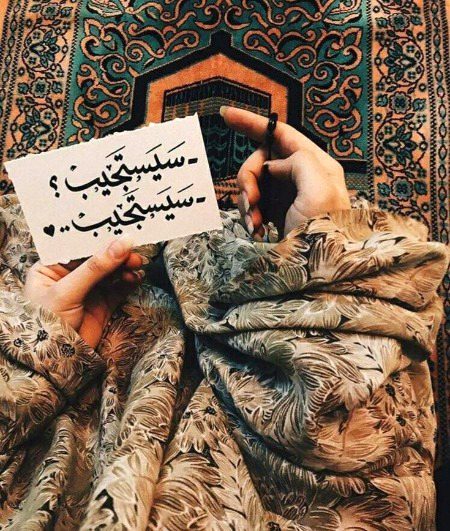 -سَيَستَجيبْ ؟
-سَيَستَجيبْ ..♥